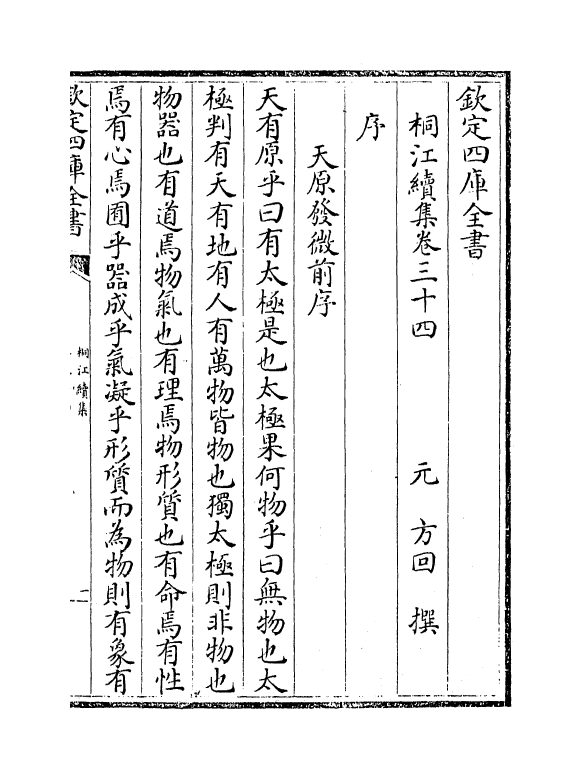 欽定四庫全書
桐江續集卷三十四 元 方回 撰
序
天原發微前序
天有原乎曰有太極是也太極果何物乎曰無物也太
極判有天有地有人有萬物皆物也獨太極則非物也
物器也有道焉物氣也有理焉物形質也有命焉有性
焉有心焉囿乎器成乎氣凝乎形質而為物則有象有
欽定四庫全書
桐江續集